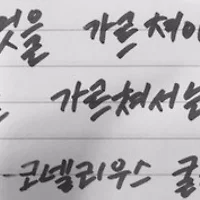 엇을 가르쳐야
가르쳐서는
-코넬리우스 굴